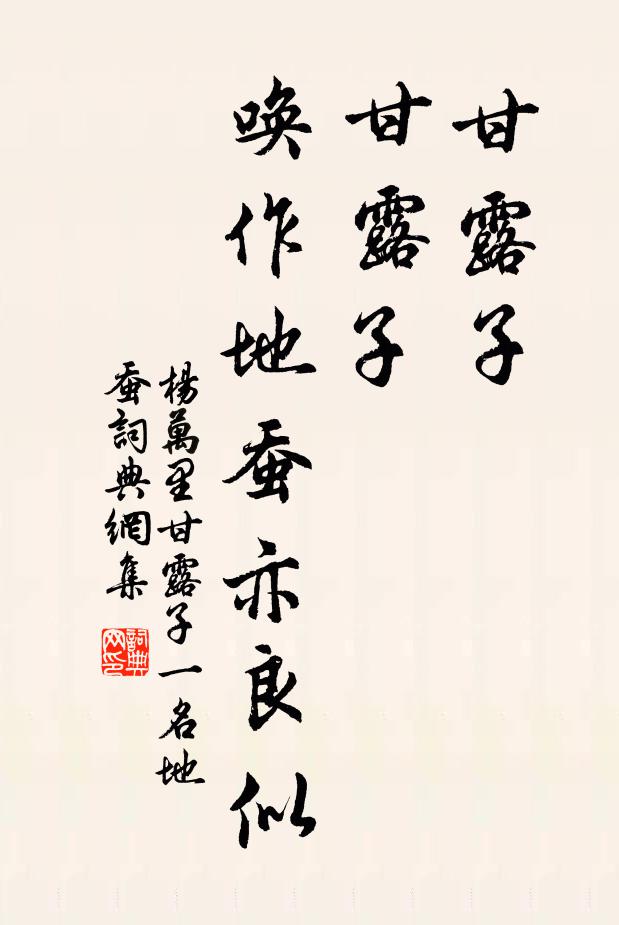 甘露子
甘露子
喚作地蚕亦良似
楊萬里甘露子一名地
蚕詞典網集
詞典
网印